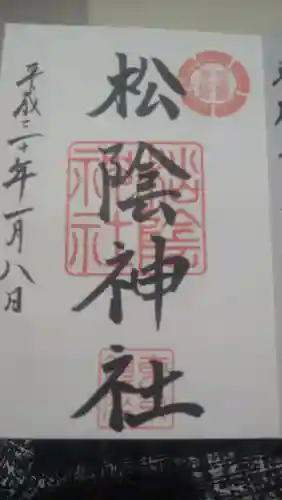 松陰神社
平成三十年一月八日